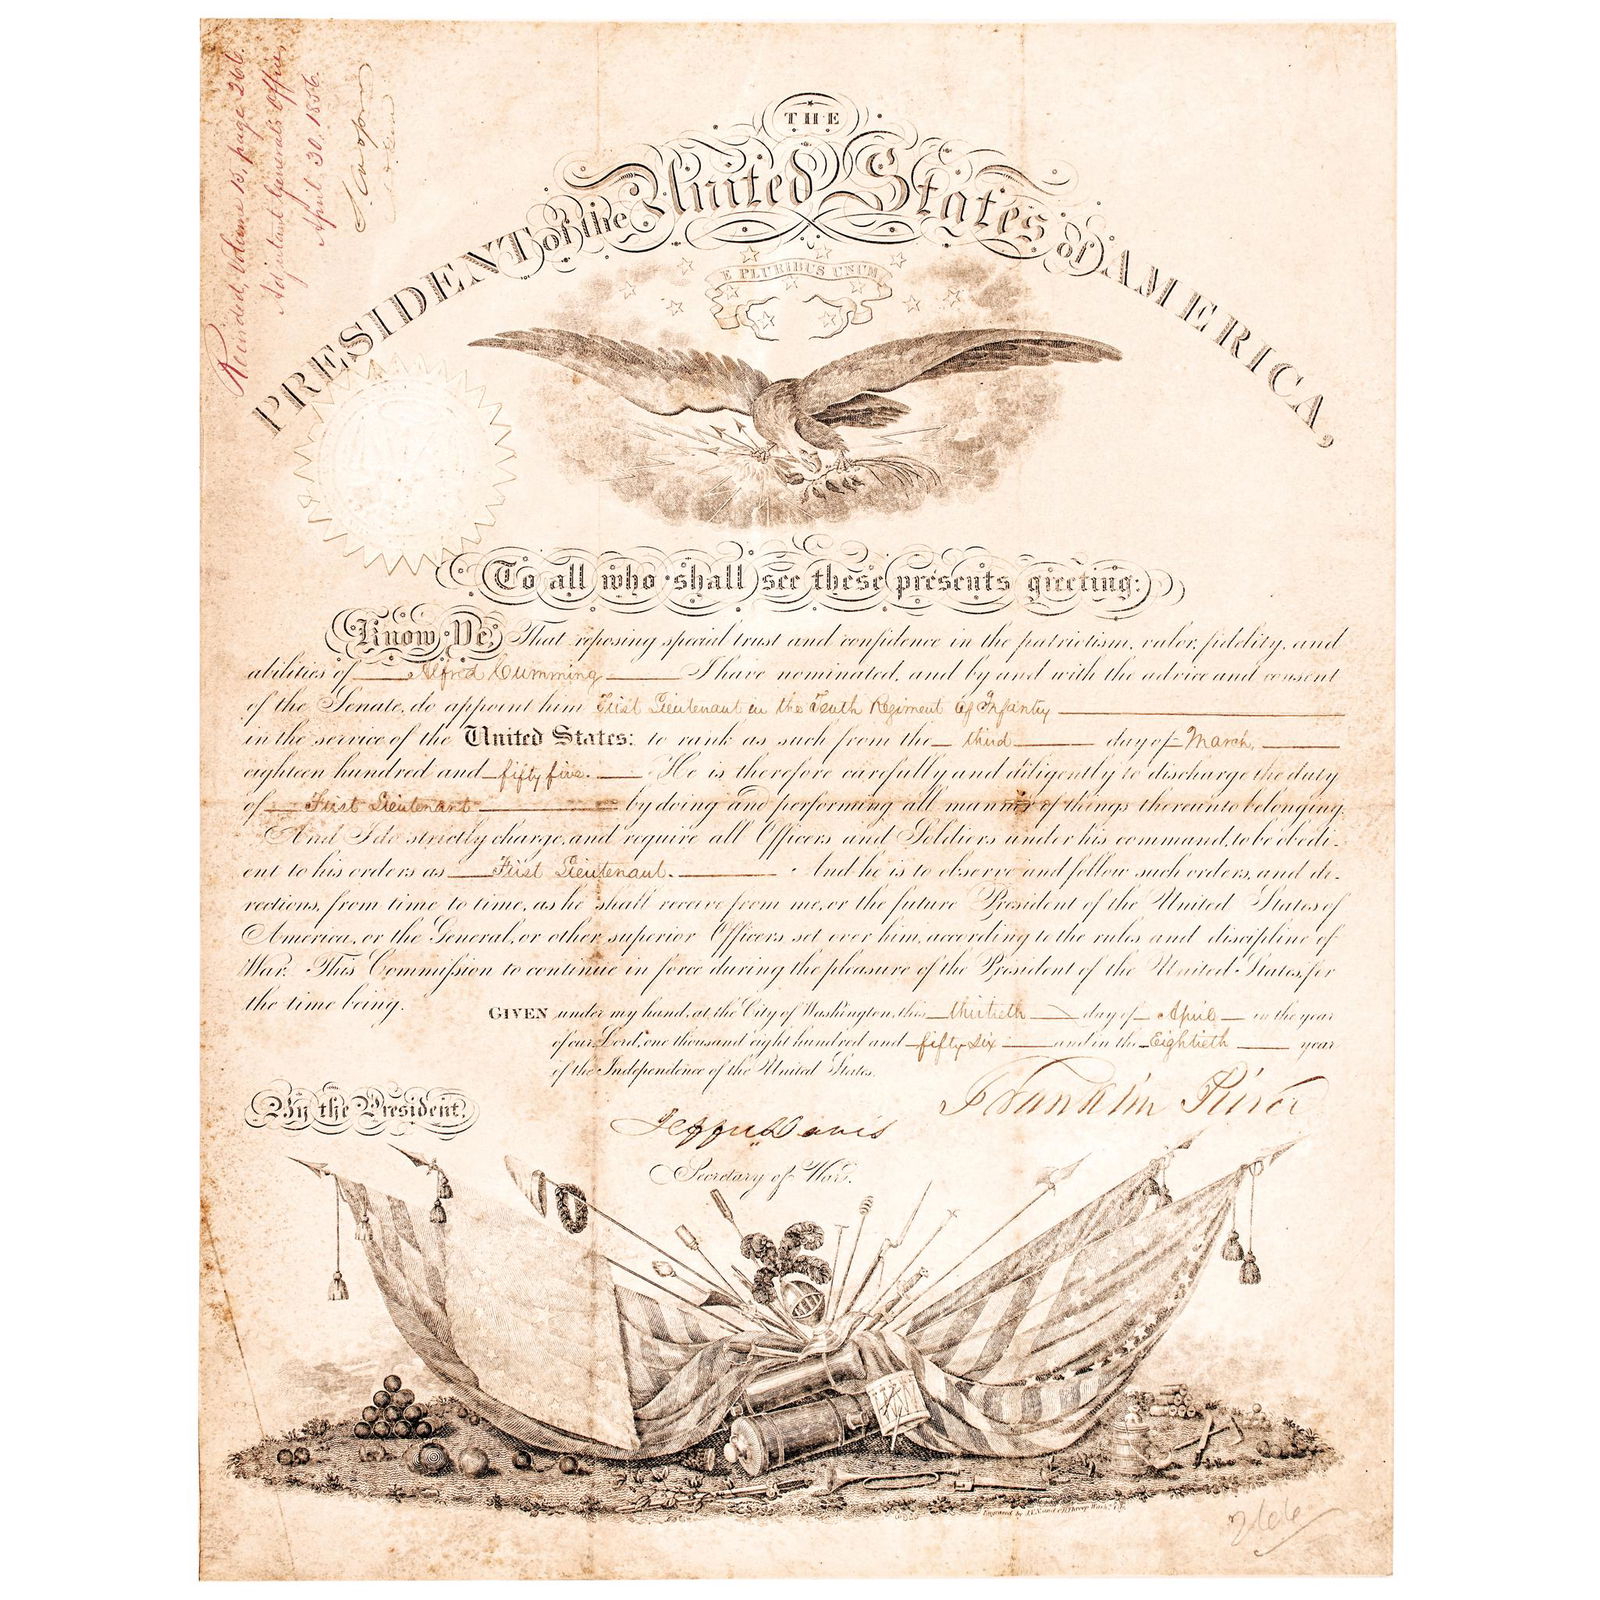 Recorded, Volume 13, page 266.
Adjutant General's Office
April 30, 1856.
THE
PRESIDENT of the United States of AMERICA,
E PLURIBUS UNUM
To all who shall see these presents greeting:
Know Ye, That reposing special trust and confidence in the patriotism, valor, fidelity, and
abilities of Alfred Cumming I have nominated, and by and with the advice and consent
of the Senate, do appoint him First Lieutenant in the Tenth Regiment of Infantry
in the service of the United States: to rank as such from the third day of March,
eighteen hundred and fifty five. He is therefore carefully and diligently to discharge the duty
of First Lieutenant by doing and performing all manner of things thereunto belonging.
And I do strictly charge, and require all Officers and Soldiers under his command, to be obedi-
ent to his orders as First Lieutenant. And he is to observe and follow such orders, and di-
rections, from time to time, as he shall receive from me, or the future President of the United States of
America, or the General, or other superior Officers set over him, according to the rules and discipline of
War. This Commission to continue in force during the pleasure of the President of the United States, for
the time being.
GIVEN under my hand, at the City of Washington, this thirtieth day of April in the year
of our Lord, one thousand eight hundred and fifty six and in the Eightieth year
of the Independence of the United States.
By the President,
Franklin Pierce
Jeffn Davis
Secretary of War.